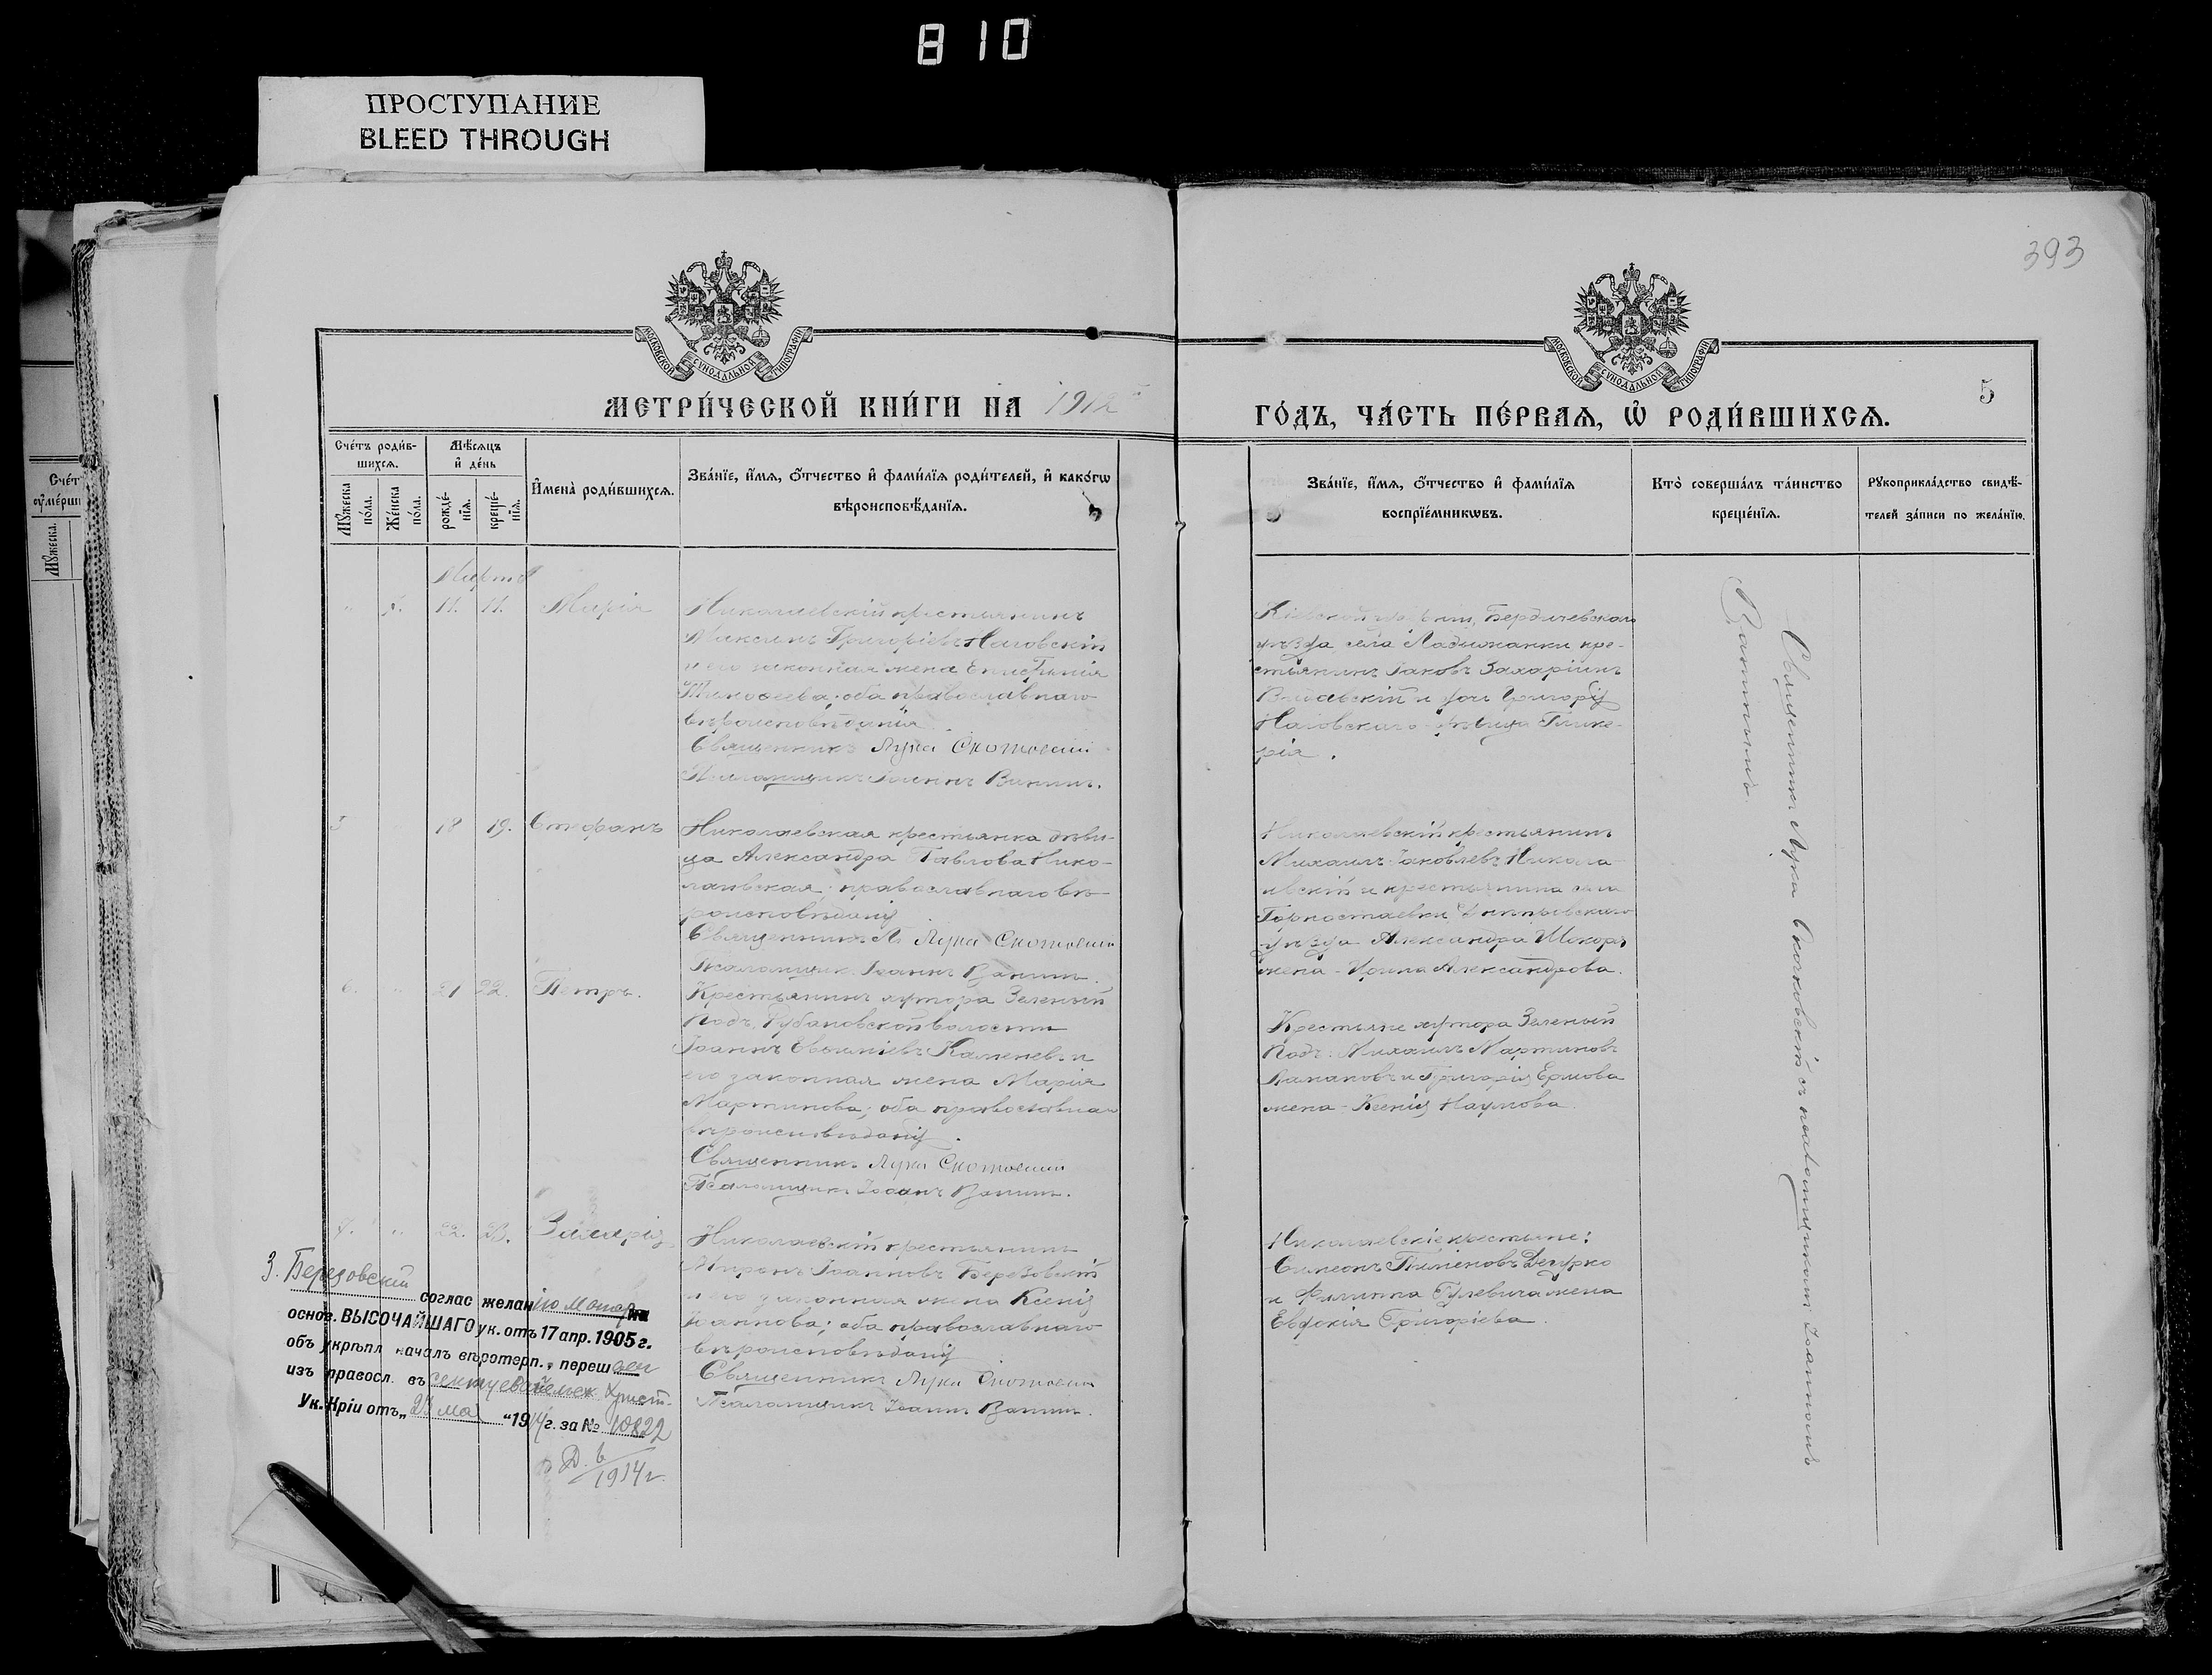 810
ПРОСТУПАНИЕ
BLEED THROUGH
393
МОСКОВСКОЙ СѴНОДАЛЬНОЙ ТИПОГРАФІИ
МОСКОВСКОЙ СѴНОДАЛЬНОЙ ТИПОГРАФІИ
5
МЕТРИ́ЧЕСКОЙ КНИ́ГИ НА 1912
ГО́ДЪ, ЧА́СТЬ ПЕ́РВАЯ, Ѡ РОДИ́ВШИХСЯ.
Сче́тъ роди́в-
шихся.
Мѣ́сяцъ
и҆ де́нь
Мꙋ́жеска по́ла.
Же́нска по́ла.
рожде́-
нїя.
креще́-
нїя.
И҆мена̀ роди́вшихся.
Зва́нїе, и҆́мя, ѻ҆́тчество и҆ фами́лїя роди́телей, и҆ како́гѡ
вѣроисповѣ́данїя.
Зва́нїе, и҆́мя, ѻ҆́тчество и҆ фами́лїя
воспрїе́мникѡвъ.
Кто̀ соверша́лъ та́инство
креще́нїя.
Рꙋкоприкла́дство свидѣ́-
телей за́писи по жела́нїю.
Сче́т
ᲂу҆ме́рши
Мꙋ́жеска.
Марта
11. 11. Марія
Николаевскій крестьянинъ
Максимъ Григоріевъ Наговскій
и его законная жена Епистимія
Тимофеева; оба православнаго
вѣроисповѣданія
Священникъ Лука Скотовскій
Псаломщикъ Іоаннъ Ванинъ.
Кіевской губерніи, Бердичевскаго
уѣзда села Ладыжанки кре-
стьянинъ Іаковъ Захаріинъ
и дочь Григорія
Наговскаго дѣвица Глике-
рія.
5 18 19. Стефанъ
Николаевская крестьянка дѣви-
ца Александра Павлова Нико-
лаевская; православнаго вѣ-
роисповѣданія
Священникъ Лука Скотовскій
Псаломщикъ Іоаннъ Ванинъ.
Николаевскій крестьянинъ
Михаилъ Іаковлевъ Никола-
евскій и крестьянина села
Горностаевки Днѣпровскаго
уѣзда Александра Шокоръ
жена - Ирина Александрова.
6. 21 22. Петръ.
Крестьянинъ хутора Зеленый
Подъ, Рубановской волости
Іоаннъ Евѳиміевъ Каменевъ и
его законная жена Марія
Мартинова; оба православнаго
вѣроисповѣданія.
Священникъ Лука Скотовскій
Псаломщикъ Іоаннъ Ванинъ.
Крестьяне хутора Зеленый
Подъ: Михаилъ Мартиновъ
и Григорія Ермова
жена - Ксенія Наумова.
7. 22. 23. Захарія
Николаевскій крестьянинъ
Миронъ Іоанновъ Березовскій
и его законная жена Ксенія
Іоаннова; оба православнаго
вѣроисповѣданія
Священникъ Лука Скотовскій
Псаломщикъ Іоаннъ Ванинъ.
Николаевскіе крестьяне:
Симеонъ Пименовъ Дегурко
и Филиппа Гулевича жена
Евдокія Григоріева.
Священникъ Лука Скотовскій съ псаломщикомъ Іоанномъ
Ванинымъ.
З. Березовскій
соглас желанію на
основ. ВЫСОЧАЙШАГО ук. отъ 17 апр. 1905 г.
объ укрѣпл началъ вѣротерп., перешелъ
изъ правосл. въ секту евангельск. христ.
Ук. Кріи отъ „27 мая“ 1914 г. за № 10822
Д. 6
1914 г.